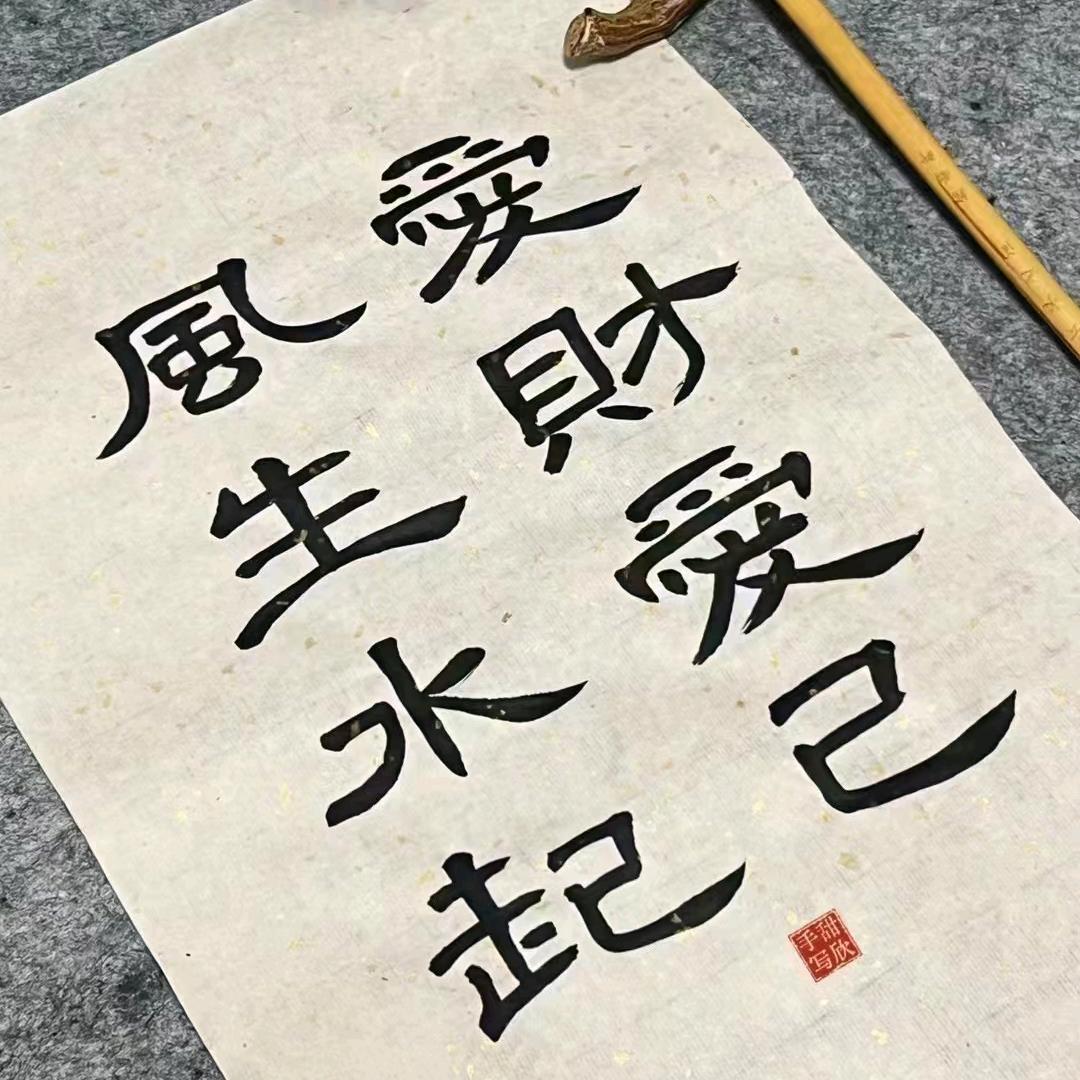 愛財愛己
風生水起
甜欣
手写